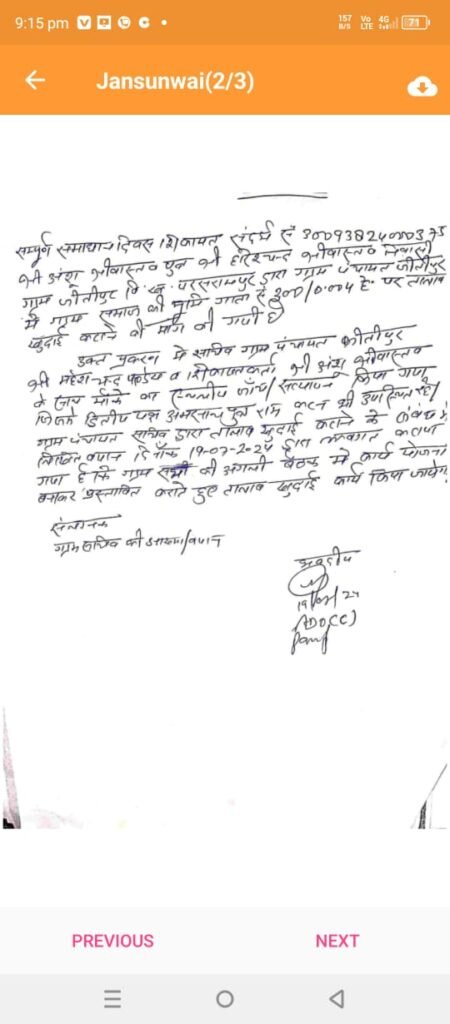 9:15 pm
157 B/S Vo LTE 4G 71
Jansunwai(2/3)
सम्पूर्ण समाधान दिवस शिकायत संदर्भ सं 30093824000373
श्री अंशू श्रीवास्तव पुत्र श्री हरिश्चन्द्र श्रीवास्तव निवासी
ग्राम जीतीपुर वि ख. परसरामपुर द्वारा ग्राम पंचायत जीतीपुर
में ग्राम समाज की भूमि गाटा सं 300/0.004 है. पर तालाब
खुदाई कराने की मांग की गयी है
उक्त प्रकरण में सचिव ग्राम पंचायत जीतीपुर
श्री महेश चन्द्र पाण्डेय व शिकायतकर्ता श्री अंशू श्रीवास्तव
के साथ मौके का स्थलीय जाँच/सत्यापन किया गया
जिसमें द्वितीय पक्ष पुत्र राम भी उपस्थित रहे/
ग्राम पंचायत सचिव द्वारा तालाब खुदाई कराने के संबंध में
लिखित बयान दिनाँक 19-07-2024 द्वारा अवगत कराया
गया है कि ग्राम सभा की अगली बैठक में कार्य योजना
बनाकर प्रस्तावित कराते हुए तालाब खुदाई कार्य किया जायेगा
संलग्नक
ग्राम सचिव की आख्या/बयान
19/07/24
ADO(C)
PREVIOUS
NEXT